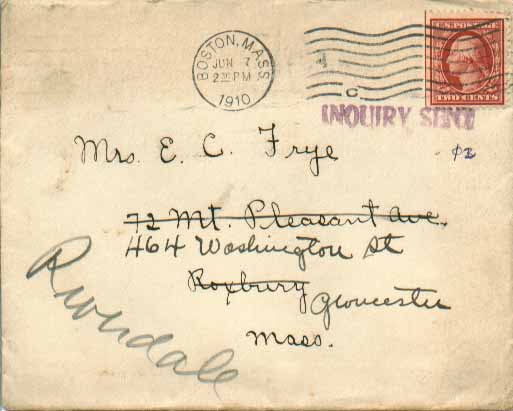 BOSTON, MASS.
JUN 7
2 30 PM
1910
C
U.S. POSTAGE
TWO CENTS
INQUIRY SENT
Mrs. E. C. Frye
72 Mt. Pleasant Ave.
464 Washington St
Roxbury Gloucester
Mass.
Riverdale